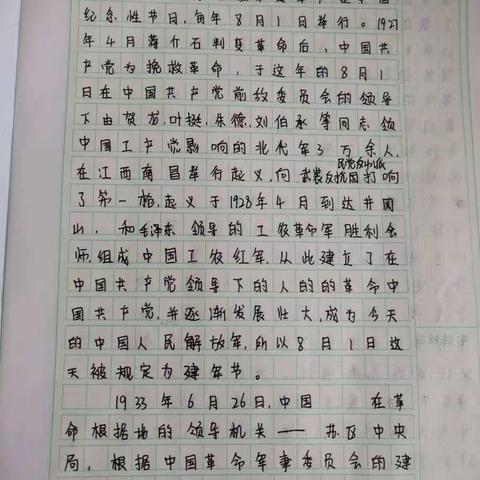 纪念性节日,每年8月1日举行。1927
年4月蒋介石判变革命后,中国共
产党为挽救革命,于这年的8月1
日在中国共产党前敌委员会的领导
下由贺龙,叶挺,朱德,刘伯承等同志领
中国工产党影响的北伐军3万余人,
在江西南昌举行起义,向武装反抗国民党反动派打响
了第一枪,起义于1928年4月到达井冈
山,和毛泽东领导的工农革命军胜利会
师,组成中国工农红军,从此建立了在
中国共产党领导下的人的的革命中
国共产党,并逐渐发展壮大,成为今天
的中国人民解放军,所以8月1日这
天被规定为建军节。
1933年6月26日,中国 在革
命根据地的领导机关——苏区中央
局,根据中国革命军事委员会的建